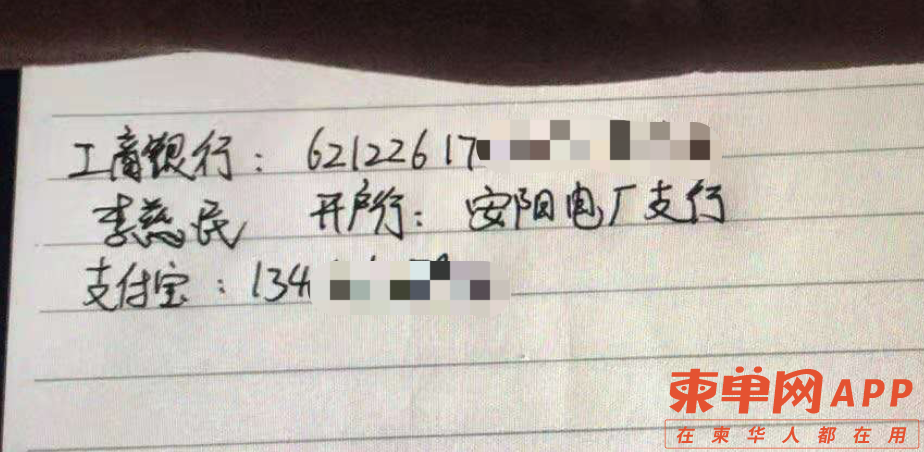 工商银行：62122617
李慈民 开户行：安阳电厂支行
支付宝：134
柬单网APP
在柬华人都在用